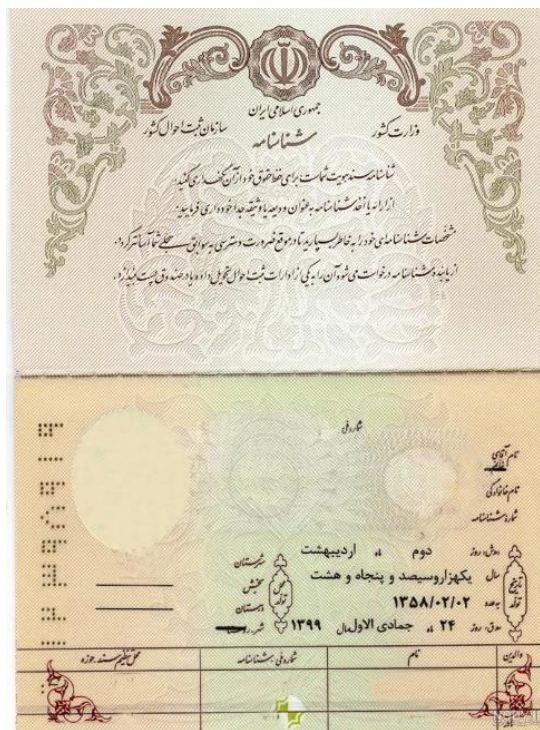 جمهوری اسلامی ایران
وزارت کشور
سازمان ثبت احوال کشور
شناسنامه
شناسنامه سند هویت شماست برای حفظ حقوق خود از آن نگهداری کنید.
از ارائه یا اخذ شناسنامه به عنوان ودیعه یا وثیقه جدا خودداری فرمایید.
مشخصات شناسنامه‌ای خود را به خاطر بسپارید تا در موقع ضرورت دسترسی به سوابق سجلی شما آسانتر گردد.
از یابنده شناسنامه درخواست می شود آن را به یکی از ادارات ثبت احوال تحویل داده یا در صندوق پست بیندازد.
شماره ملی
نام آقای
نام خانوادگی
شماره شناسنامه
تاریخ تولد
روز دوم ماه اردیبهشت
سال یکهزاروسیصد و پنجاه و هشت
۱۳۵۸/۰۲/۰۲
روز ۲۴ ماه جمادی الاول سال ۱۳۹۹
محل تولد
شهرستان
بخش
دهستان
شهر
والدین
نام
شماره ملی / شناسنامه
محل تنظیم سند / حوزه